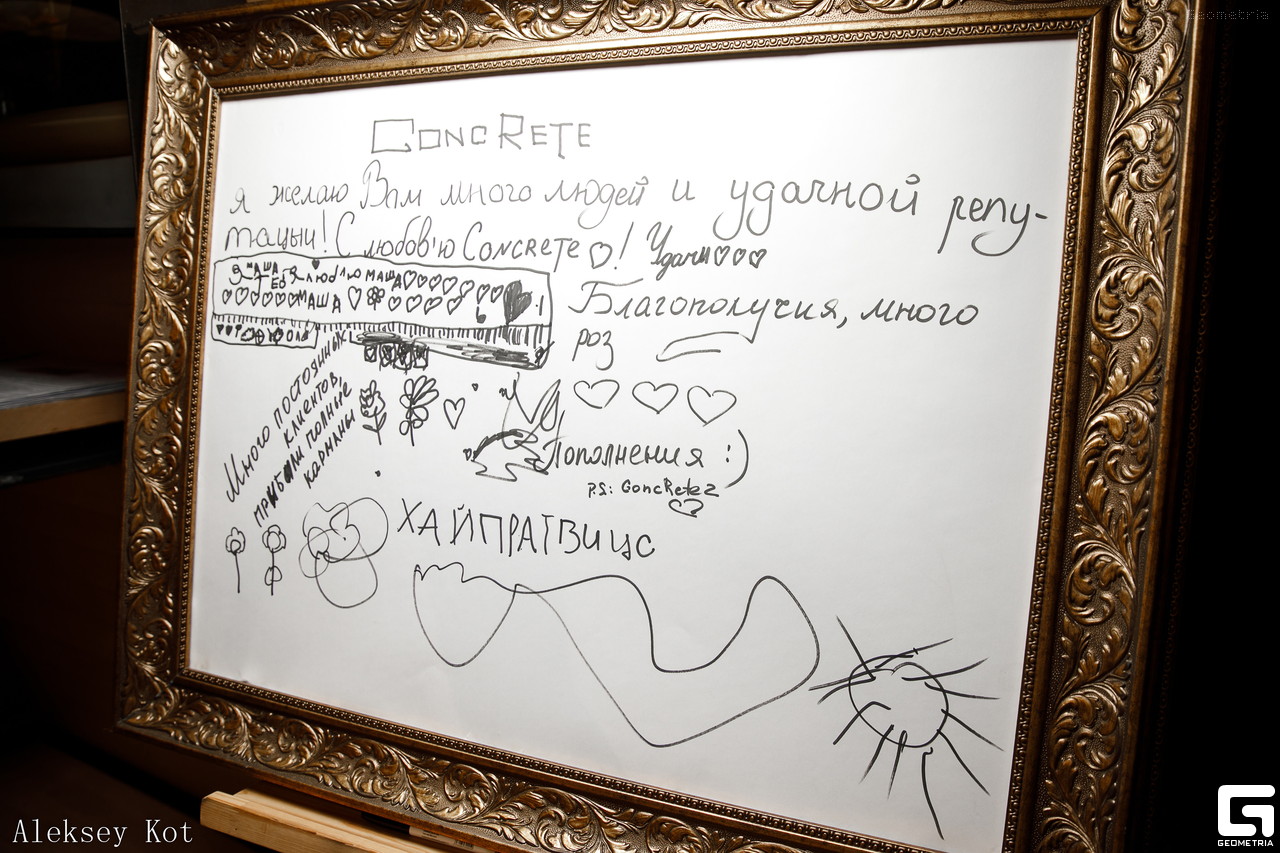 geometria
CONCRETE
я желаю Вам много людей и удачной репу-
тацыи! С любов'ю Concrete ! Удачи
Я люблю МАША
МАША
Благополучия, много
роз
Много постоянных
клиентов,
прибыли полные
карманы
Пополнения :)
P.S: Concrete 2
ХАЙПРАТВИЦС
Aleksey Kot
GEOMETRIA